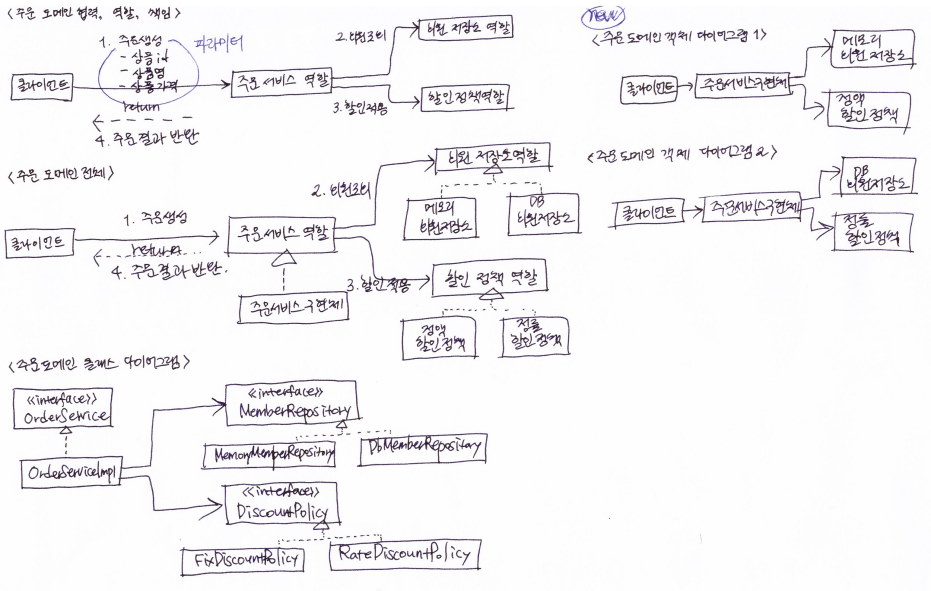 <주문 도메인 협력, 역할, 책임>
1. 주문생성
파라미터
- 상품id
- 상품명
- 상품가격
클라이언트
return
4. 주문결과 반환
주문 서비스 역할
2. 회원조회
회원 저장소 역할
3. 할인적용
할인정책역할
<주문 도메인 전체>
클라이언트
1. 주문생성
return
4. 주문결과 반환.
주문서비스 역할
주문서비스 구현체
2. 회원조회
회원 저장소역할
메모리
회원저장소
DB
회원저장소
3. 할인적용
할인 정책 역할
정액
할인정책
정률
할인정책
<주문도메인 클래스 다이어그램>
<<interface>>
OrderService
OrderServiceImpl
<<interface>>
MemberRepository
MemoryMemberRepository
DbMemberRepository
<<interface>>
DiscountPolicy
FixDiscountPolicy
RateDiscountPolicy
new
<주문도메인 객체 다이어그램 1>
클라이언트
주문서비스구현체
메모리
회원저장소
정액
할인정책
<주문도메인 객체 다이어그램 2>
클라이언트
주문서비스구현체
DB
회원저장소
정률
할인정책